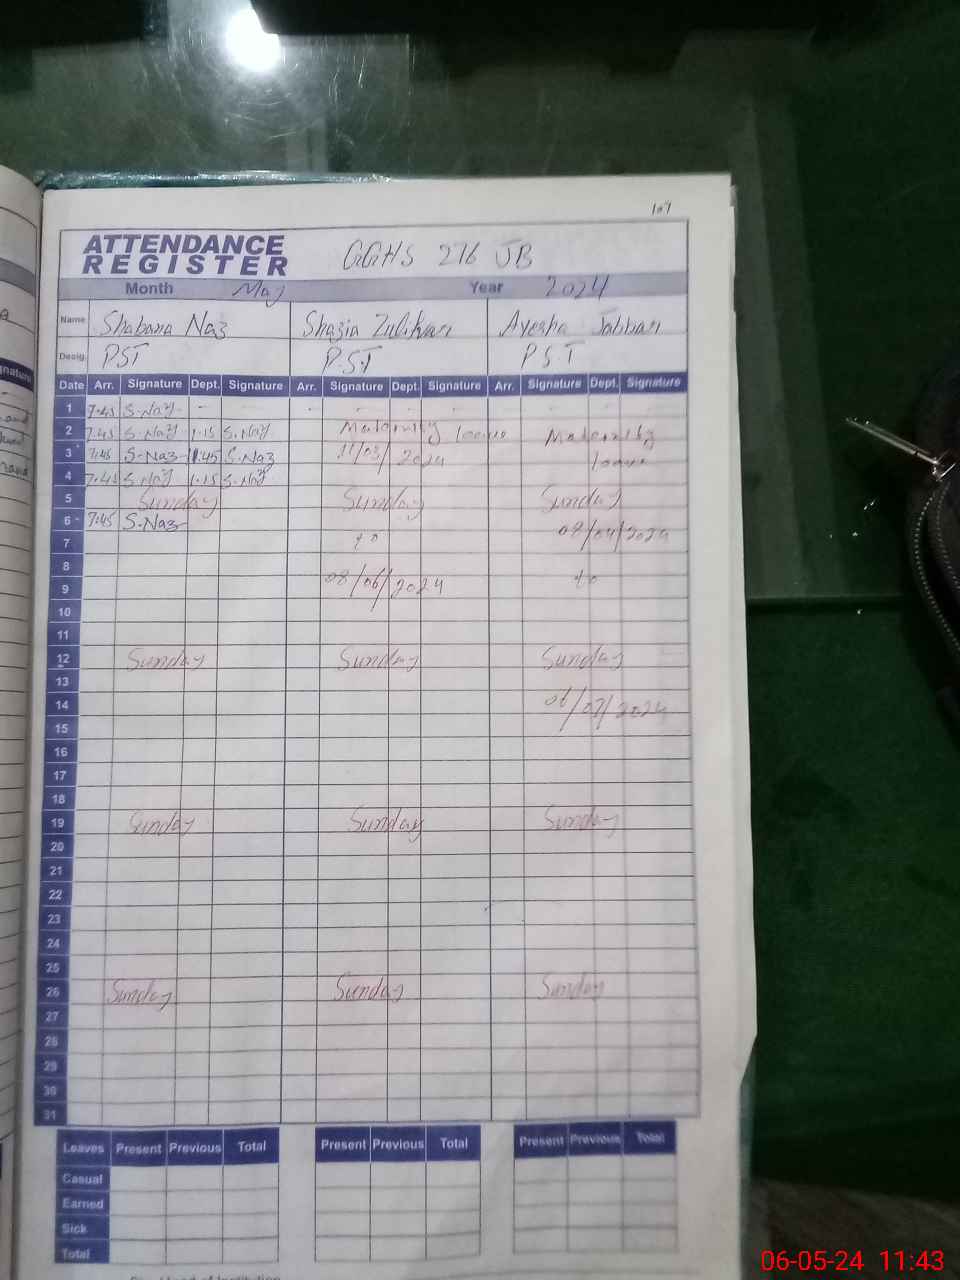 107
ATTENDANCE
REGISTER
GGHS 276 JB
Month May Year 2024
Name Shabana Naz Shazia Zulifkar Ayesha Jabbar
Desig. PST P.S.T P.S.T
Date Arr. Signature Dept. Signature Arr. Signature Dept. Signature Arr. Signature Dept. Signature
1 7.45 S-Naz - - - - - - - - -
2 7.45 S-Naz 1.15 S.Naz Maternity leave Maternity
3 7.45 S-Naz 1.45 S.Naz 11/03/2024 leave
4 7.45 S-Naz 1.15 S.Naz
5 Sunday Sunday Sunday
6 7.45 S-Naz
7 to 08/04/2024
8
9 08/06/2024 to
10
11
12 Sunday Sunday Sunday
13
14 06/07/2024
15
16
17
18
19 Sunday Sunday Sunday
20
21
22
23
24
25
26 Sunday Sunday Sunday
27
28
29
30
31
Leaves Present Previous Total Present Previous Total Present Previous Total
Casual
Earned
Sick
Total
06-05-24 11:43